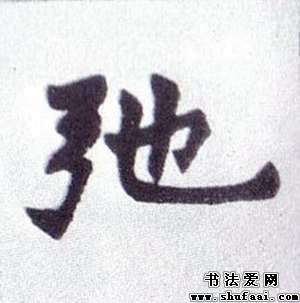 弛
书法爱网
www.shufaai.com